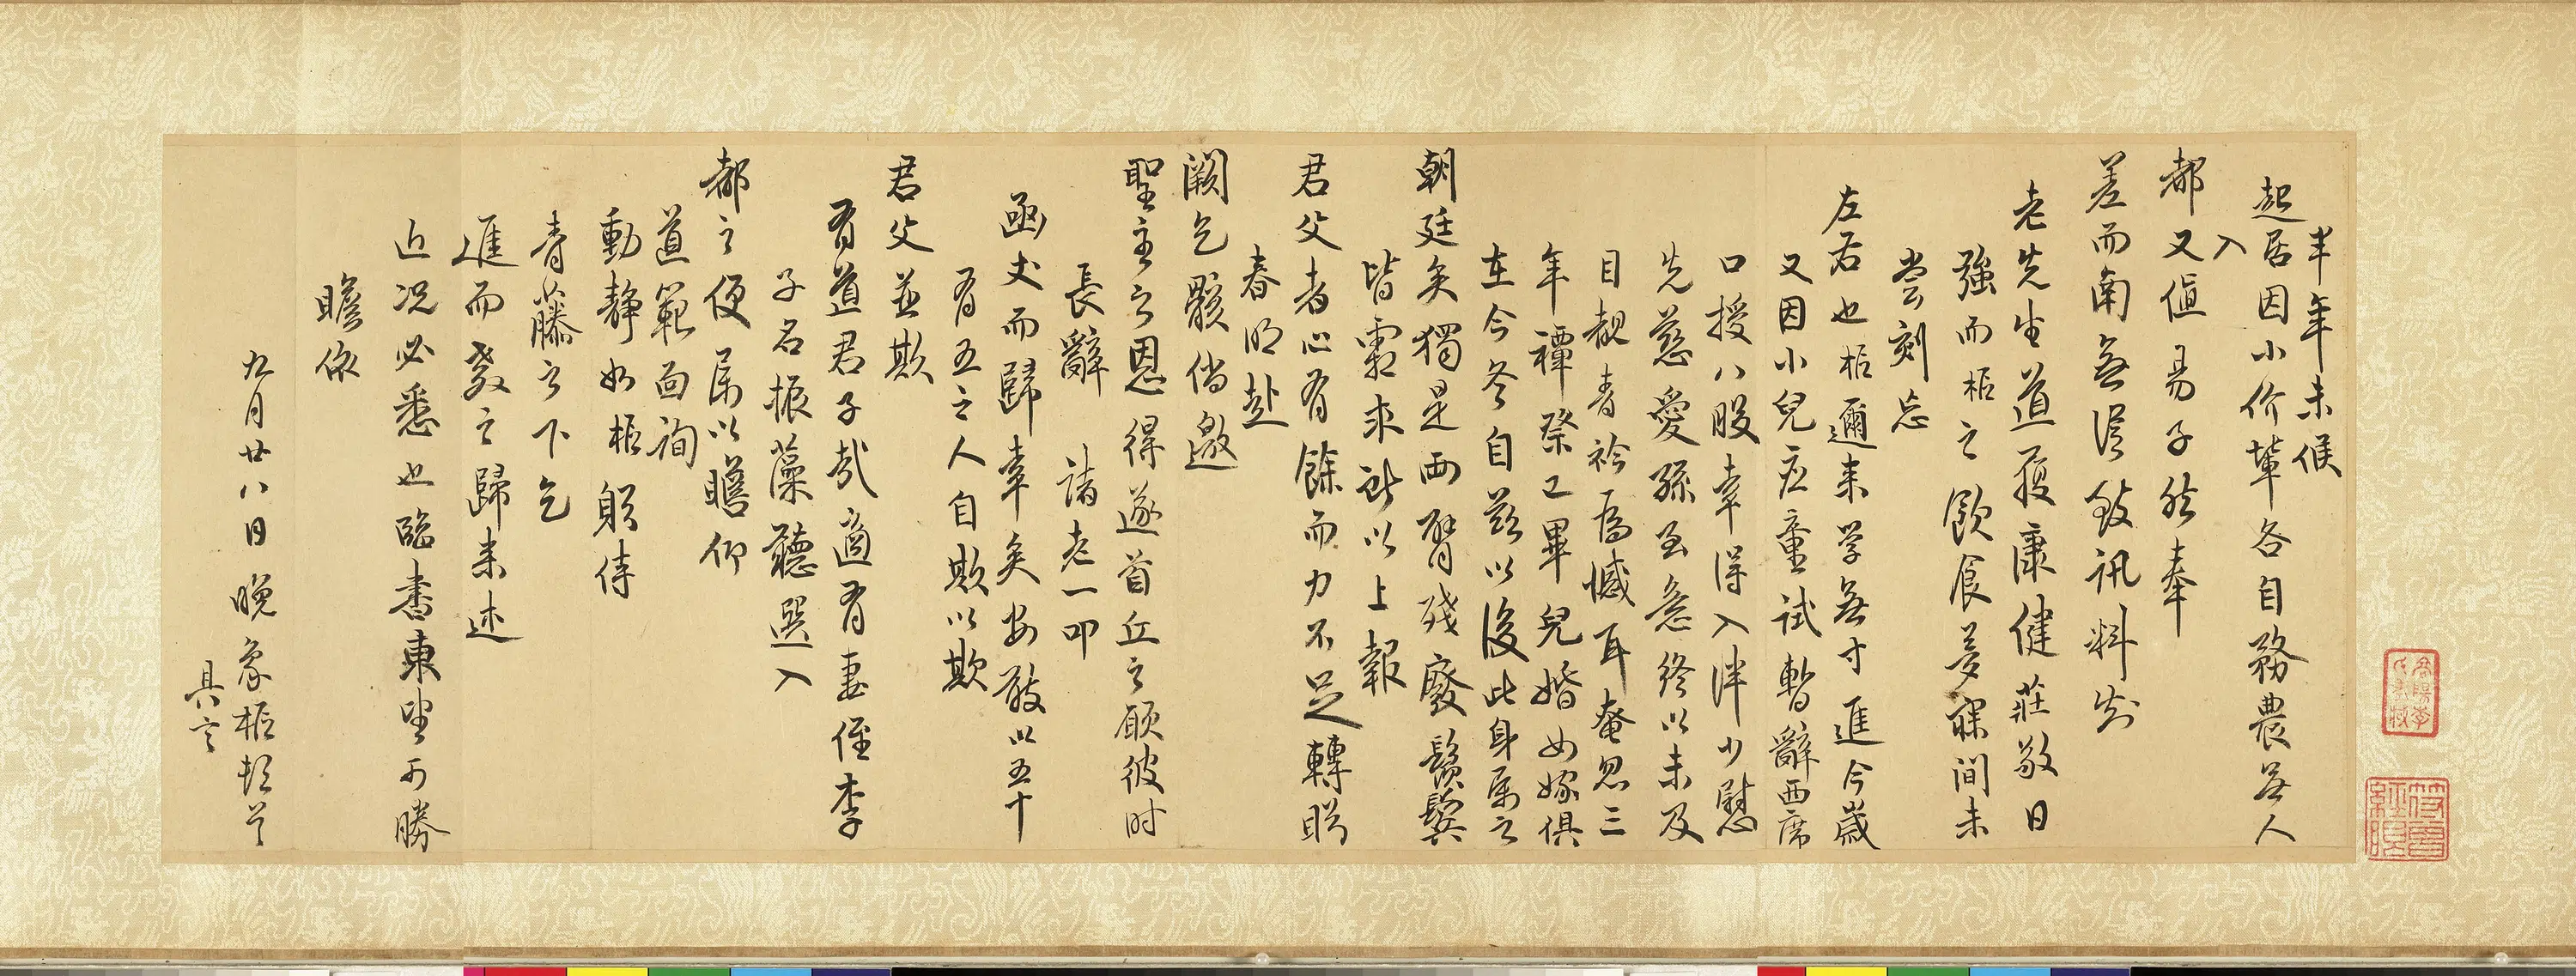 半年未候
起居因小价輩各自務農無人
入
都又值易子然奉
差而南無從致訊料刻
老先生道履康健莊敬日
強而柜之飲食夢寐間未
嘗刻忘
左右也柜邇來學無寸進今歲
又因小兒應童試暫辭西席
口授八股幸得入泮少慰
先慈愛孫至意終以未及
目覩青衿為憾耳奄忽三
年禫祭已畢兒婚女嫁俱
在今冬自茲以後此身屬之
朝廷矣獨是两臂殘廢鬚鬢
皆霜求所以上報
君父者心有餘而力不足轉盼
春明赴
闕乞骸倘邀
聖主之恩得遂首丘之願彼时
長辭 諸老一叩
函丈而歸幸矣安敢以五十
有五之人自欺以欺
君父並欺
有道君子哉適有妻侄李
子名振藻聽選入
都之便属以瞻仰
道範面詢
動靜如柜躬侍
青藤之下乞
進而教之歸来述
近况必悉也臨書東望可勝
瞻依
九月廿八日晚象柜頓首
具言